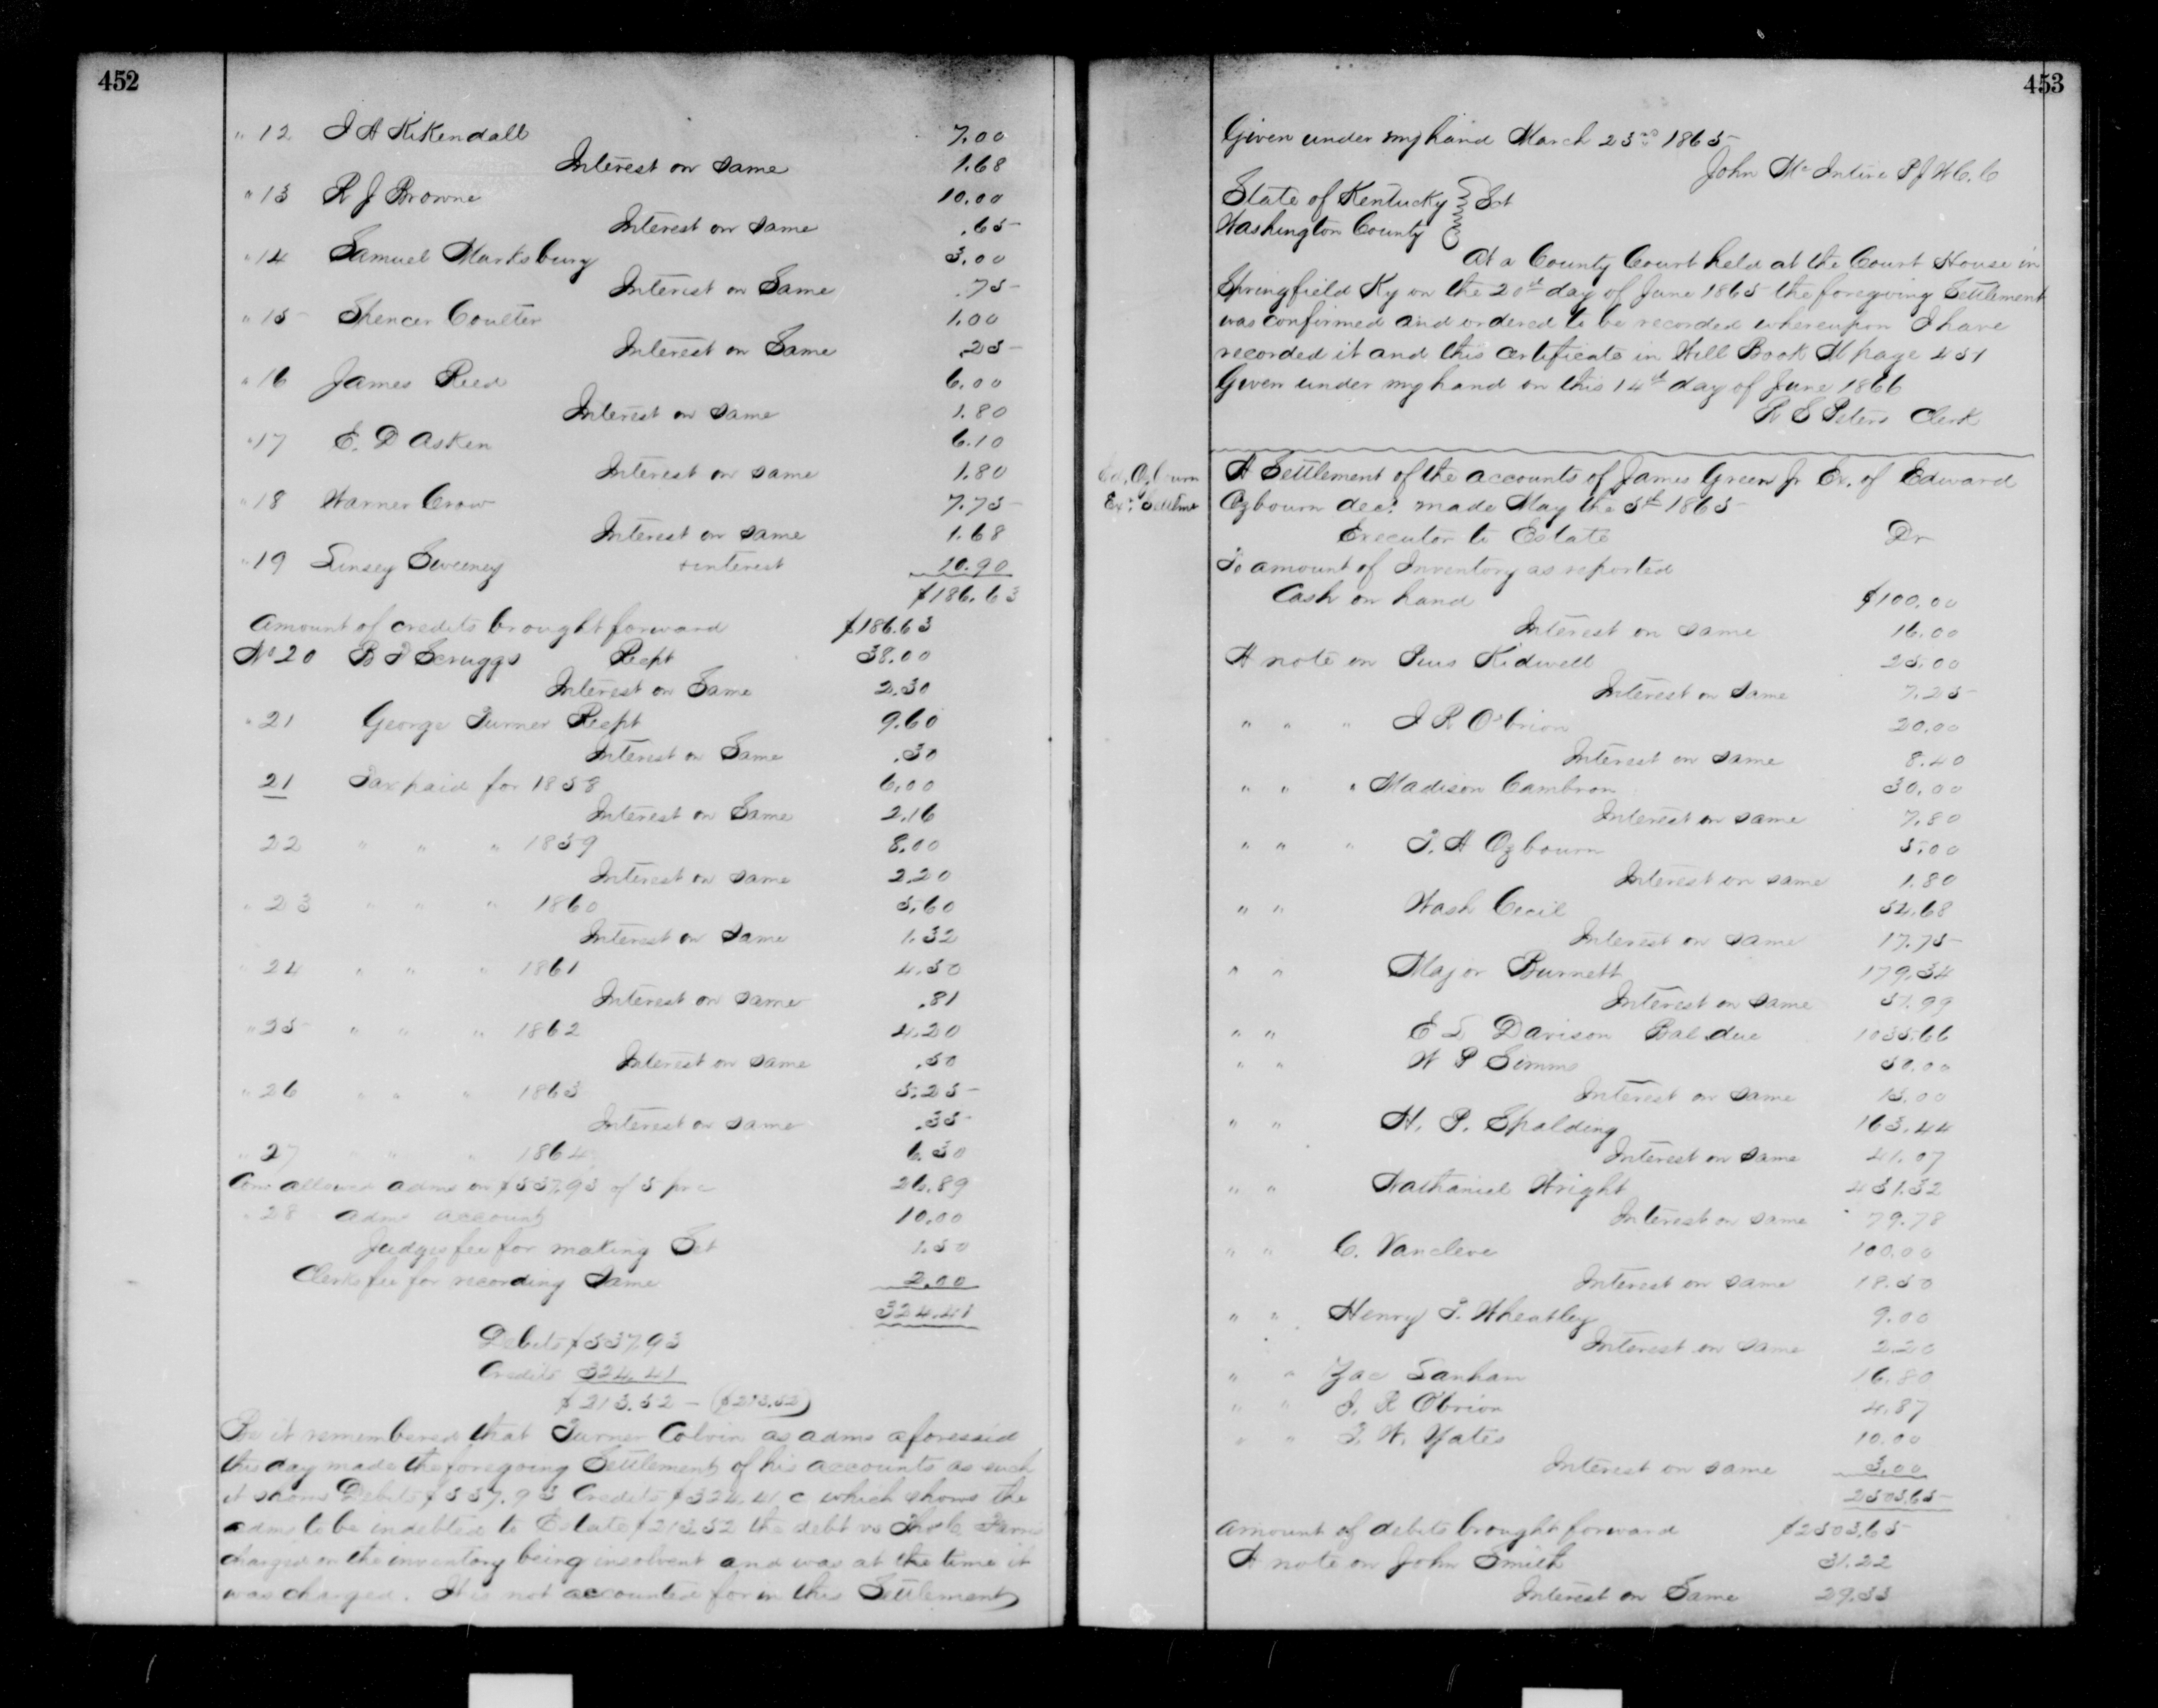 452
" 12 J A KiKendall 7.00
Interest on same 1.68
" 13 R J Browne 10.00
Interest on same .65
" 14 Samuel Marksbury 3.00
Interest on Same .75
" 15 Spencer Coulter 1.00
Interest on Same .25
" 16 James Reed 6.00
Interest on same 1.80
" 17 E. D Asken 6.10
Interest on same 1.80
" 18 Warner Crow 7.75
Interest on same 1.68
" 19 Linsey Sweeney + interest 10.90
$186.63
Amount of credits brought forward $186.63
No 20 B D Scruggs Recpt 38.00
Interest on Same 2.30
" 21 George Turner Recpt 9.60
Interest on Same .30
21 Tax paid for 1858 6.00
Interest on Same 2.16
22 " " " 1859 8.00
Interest on same 2.20
" 23 " " " 1860 5.60
Interest on same 1.32
" 24 " " " 1861 4.50
Interest on same .81
" 25 " " " 1862 4.20
Interest on same .50
" 26 " " " 1863 5.25
Interest on same .35
" 27 " " " 1864 6.30
Com allowed adms on $537.93 of 5 pr c 26.89
" 28 adms account 10.00
Judges fee for making Set 1.50
Clerks fee for recording Same 2.00
324.41
Debits $537.93
Credits 324.41
$213.52 - ($213.52)
Be it remembered that Turner Colvin as adms aforesaid
this day made the foregoing Settlement of his accounts as such
it shows Debits $537.93 Credits $324.41 c which shows the
adms to be indebted to Estate $213.52 the debt vs
charged on the inventory being insolvent and was at the time it
was charged. It is not accounted for in this Settlement
453
Given under my hand March 23rd 1865
John McIntire P J W C. C
State of Kentucky } Sct
Washington County
At a County Court held at the Court House in
Springfield Ky on the 20th day of June 1865 the foregoing Settlement
was confirmed and ordered to be recorded whereupon I have
recorded it and this certificate in Will Book M page 451
Given under my hand on this 14th day of June 1866
Peters Clerk
Ed. Ozburn
Exr Settlmt
A Settlement of the accounts of James Green Jr Ex. of Edward
Ozbourn decd. made May the 5th 1865
Executor to Estate Dr
To amount of Inventory as reported
Cash on hand $100.00
Interest on same 16.00
A note on Pius Kidwell 25.00
Interest on same 7.25
" " " J R O'brion 20.00
Interest on same 8.40
" " " Madison Cambron 30.00
Interest on same 7.80
" " " T. H Ozbourn 5.00
Interest on same 1.80
" " Wash Cecil 54.68
Interest on same 17.75
" " Major Burnett 179.34
Interest on same 37.99
" " E L Davison Bal due 1035.66
" " W P Simms 50.00
Interest on same 15.00
" " H. P. Spalding 163.44
Interest on same 41.07
" " Nathaniel Wright 431.32
Interest on same 79.78
" " C. Vancleve 100.00
Interest on same 18.50
" " Henry T. Wheatley 9.00
Interest on same 2.20
" " Zac Lanham 16.80
" " J. R Obrion 4.87
" " T. W. Yates 10.00
Interest on same 3.00
2503.65
Amount of debits brought forward $2503.65
A note on John Smith 31.22
Interest on Same 29.33